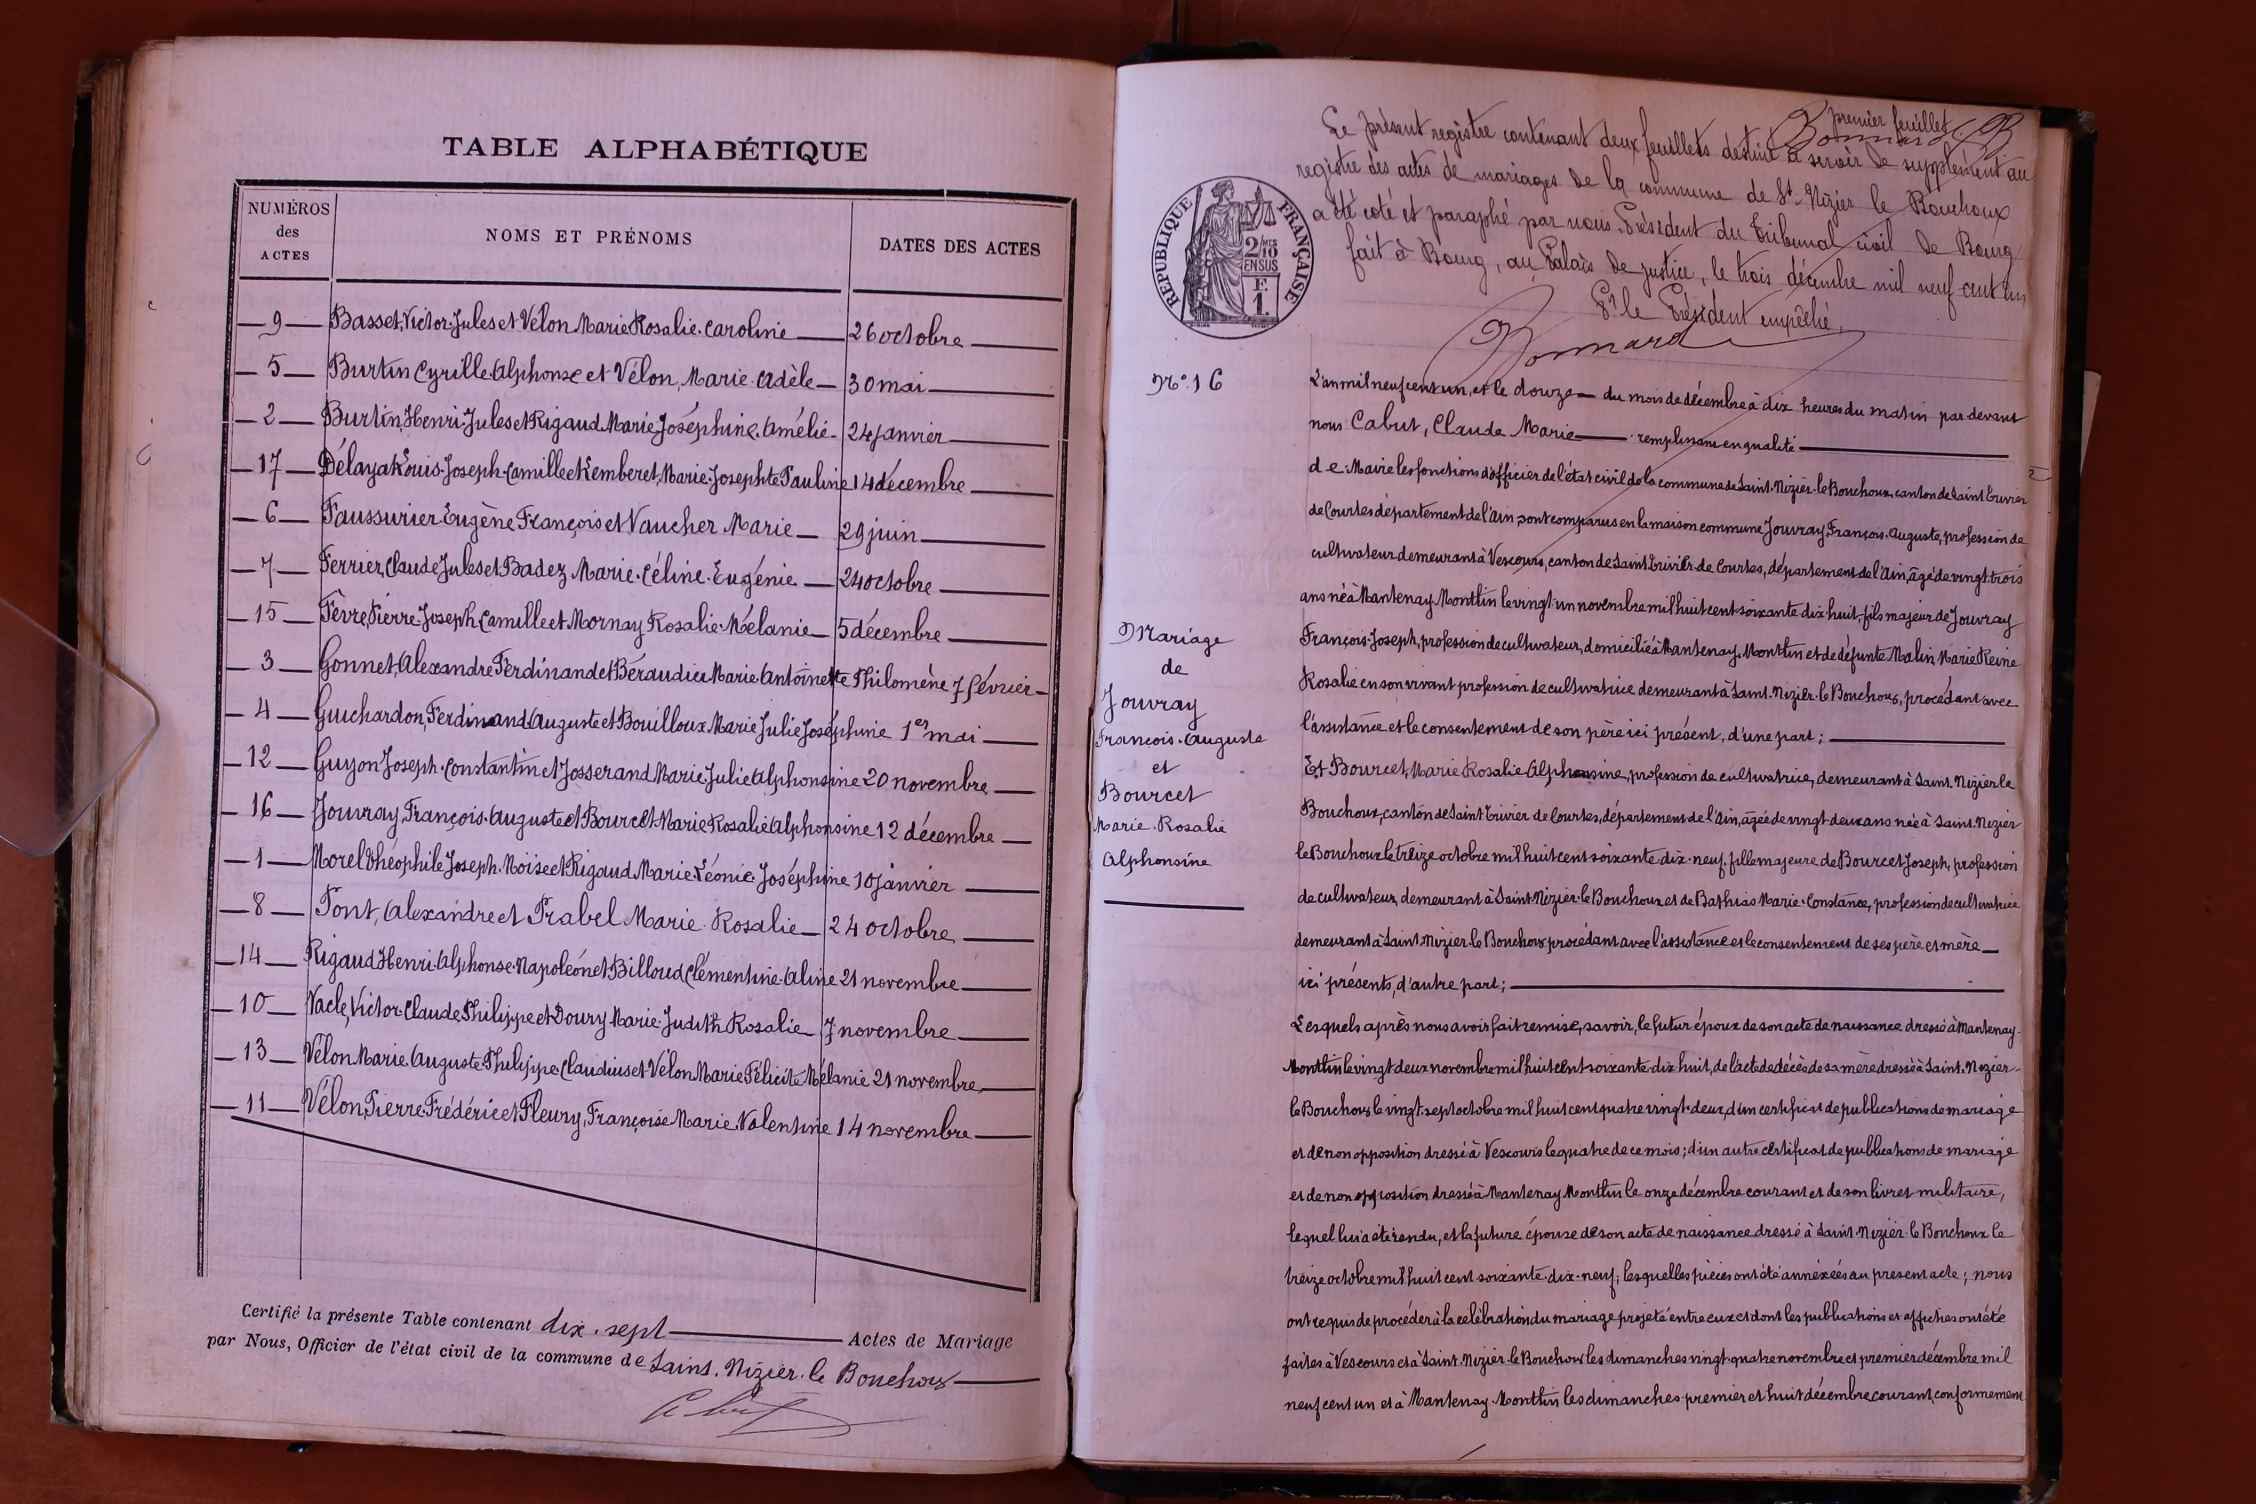 TABLE ALPHABÉTIQUE
NUMÉROS des ACTES
NOMS ET PRÉNOMS
DATES DES ACTES
9 Basset, Victor-Jules et Vélon Marie Rosalie-Caroline 26 octobre
5 Burtin Cyrille Alphonse et Vélon, Marie-Adèle 30 mai
2 Burtin, Henri-Jules et Rigaud Marie-Joséphine-Amélie 24 janvier
17 Délaya Louis-Joseph-Camille et Lemberet, Marie-Josephte Pauline 14 décembre
6 Faussurier Eugène François et Vaucher Marie 29 juin
7 Ferrier, Claude Jules et Badez Marie-Céline-Eugénie 24 octobre
15 Fèvre, Pierre-Joseph Camille et Mornay Rosalie-Mélanie 5 décembre
3 Gonnet, Alexandre Ferdinand et Béraudier Marie Antoinette Philomène 7 février
4 Guichardon, Ferdinand Auguste et Bouilloux Marie Julie Joséphine 1er mai
12 Guyon Joseph-Constantin et Josserand Marie Julie Alphonsine 20 novembre
16 Jouvray, François-Auguste et Bourcet Marie Rosalie Alphonsine 12 décembre
1 Morel Théophile Joseph-Moïse et Rigaud Marie-Léonie-Joséphine 10 janvier
8 Pont, Alexandre et Prabel Marie-Rosalie 24 octobre
14 Rigaud Henri-Alphonse-Napoléon et Billoud Clémentine-Aline 21 novembre
10 Vacle, Victor-Claude Philippe et Doury Marie-Judith Rosalie 7 novembre
13 Vélon Marie Auguste Philippe Claudius et Vélon Marie Félicité Mélanie 21 novembre
11 Vélon, Pierre-Frédéric et Fleury, Françoise Marie Valentine 14 novembre
Certifié la présente Table contenant dix-sept Actes de Mariage
par Nous, Officier de l'état civil de la commune de Saint-Nizier-le Bouchoux
Cabut
premier feuillet
Bonnard B
Le présent registre contenant deux feuillets destiné à servir de supplément au
registre des actes de mariages de la commune de St-Nizier le Bouchoux
a été coté et paraphé par nous Président du Tribunal civil de Bourg
fait à Bourg, au Palais de justice, le trois décembre mil neuf cent un
Pr le Président empêché,
Bonnard
RÉPUBLIQUE FRANÇAISE
2/10 EN SUS
F.
1.
No. 16
Mariage
de
Jouvray
François-Auguste
et
Bourcet
Marie-Rosalie
Alphonsine
L'an mil neuf cent un, et le douze du mois de décembre à dix heures du matin par devant
nous Cabut, Claude Marie remplissant en qualité
de Maire les fonctions d'officier de l'état civil de la commune de Saint-Nizier-le Bouchoux canton de Saint Trivier
de Courtes département de l'Ain, sont comparus en la maison commune Jouvray, François-Auguste, profession de
cultivateur demeurant à Vescours, canton de Saint Trivier de Courtes, département de l'Ain, âgé de vingt-trois
ans né à Mantenay Montlin le vingt-un novembre mil huit cent soixante dix huit, fils majeur de Jouvray
François-Joseph, profession de cultivateur, domicilié à Mantenay-Montlin et de défunte Malin Marie Reine
Rosalie en son vivant profession de cultivatrice demeurant à Saint-Nizier-le Bouchoux, procédant avec
l'assistance et le consentement de son père ici présent, d'une part;
Et Bourcet, Marie Rosalie-Alphonsine, profession de cultivatrice, demeurant à Saint-Nizier le
Bouchoux, canton de Saint Trivier de Courtes, département de l'Ain, âgée de vingt deux ans née à Saint-Nizier
le Bouchoux le treize octobre mil huit cent soixante-dix-neuf, fille majeure de Bourcet Joseph, profession
de cultivateur, demeurant à Saint-Nizier-le Bouchoux et de Bathias Marie-Constance, profession de cultivatrice
demeurant à Saint-Nizier-le Bouchoux procédant avec l'assistance et le consentement de ses père et mère
ici présents, d'autre part;
Lesquels après nous avoir fait remise, savoir, le futur époux de son acte de naissance dressé à Mantenay-
Montlin le vingt deux novembre mil huit cent soixante-dix huit, de l'acte de décès de sa mère dressé à Saint-Nizier-
le Bouchoux le vingt-sept octobre mil huit cent quatre vingt-deux, d'un certificat de publications de mariage
et de non opposition dressé à Vescours le quatre de ce mois; d'un autre certificat de publications de mariage
et de non opposition dressé à Mantenay Montlin le onze décembre courant et de son livret militaire,
lequel lui a été rendu, et la future épouse de son acte de naissance dressé à Saint-Nizier-le Bouchoux le
treize octobre mil huit cent soixante-dix-neuf; lesquelles pièces ont été annexées au présent acte; nous
ont requis de procéder à la célébration du mariage projeté entre eux et dont les publications et affiches ont été
faites à Vescours et à Saint-Nizier-le Bouchoux les dimanches vingt-quatre novembre et premier décembre mil
neuf cent un et à Mantenay-Montlin les dimanches premier et huit décembre courant, conformément